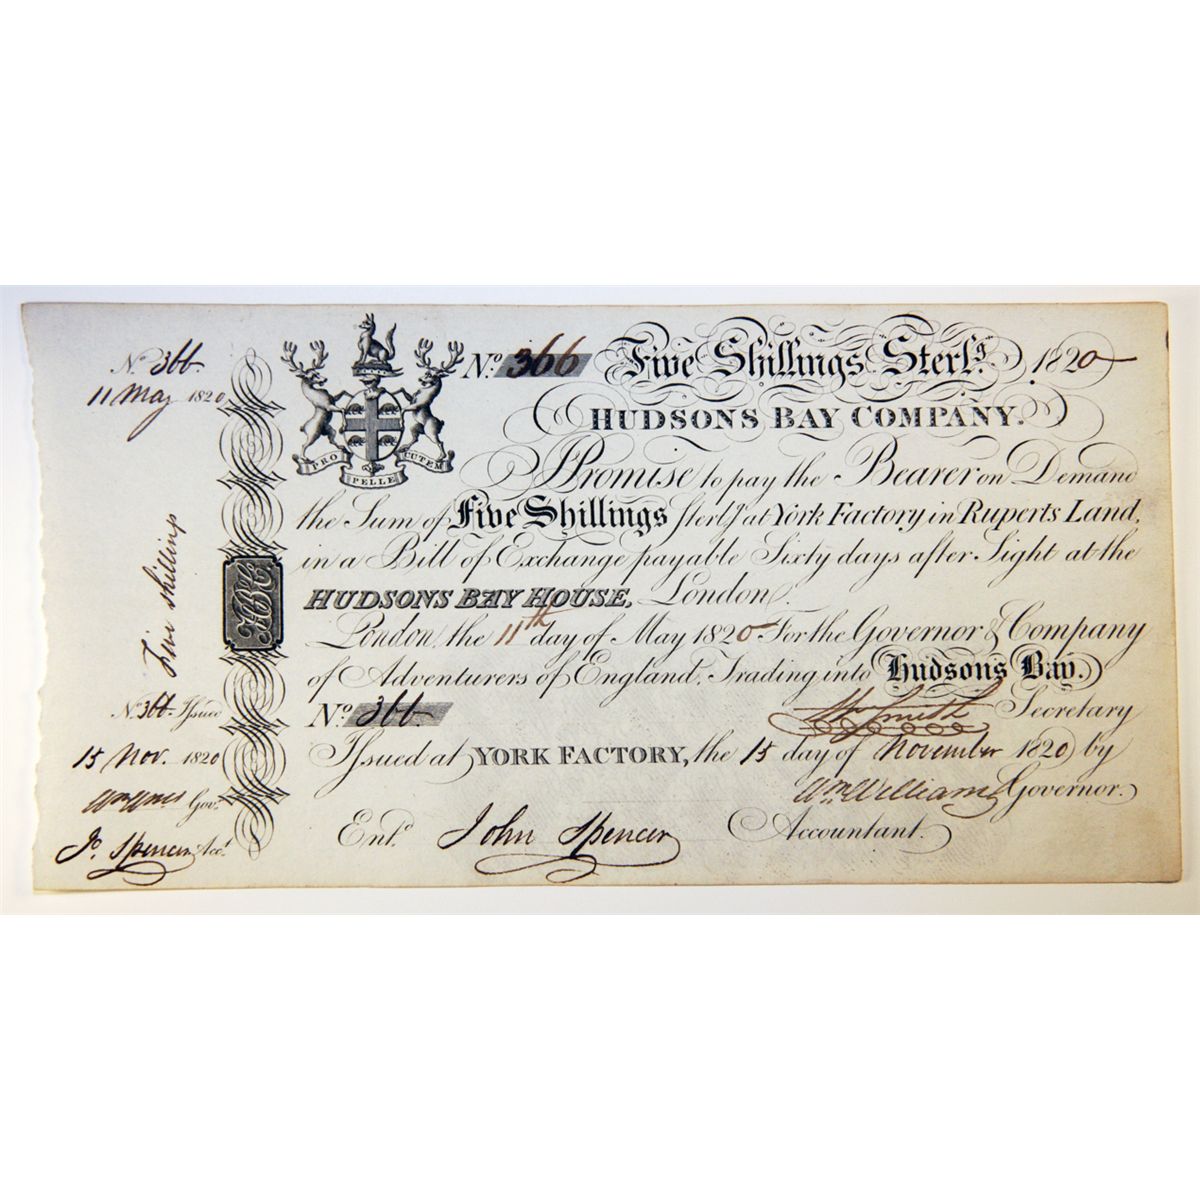 No. 366
11 May 1820
Five shillings
No. 366 Issued
15 Nov. 1820
Govr.
Jo. Spencer Acct.
HBC
PRO PELLE CUTEM
No. 366 Five Shillings Sterls. 1820
HUDSONS BAY COMPANY.
I Promise to pay the Bearer on Demand
the Sum of Five Shillings Sterls. at York Factory in Ruperts Land,
in a Bill of Exchange payable Sixty days after Sight at the
HUDSONS BAY HOUSE, London.
London, the 11th day of May 1820 For the Governor & Company
of Adventurers of England, Trading into Hudsons Bay.
No. 366 Wm Smith Secretary
Issued at YORK FACTORY, the 15 day of November 1820 by
Wm Williams Governor.
Entd. John Spencer Accountant.